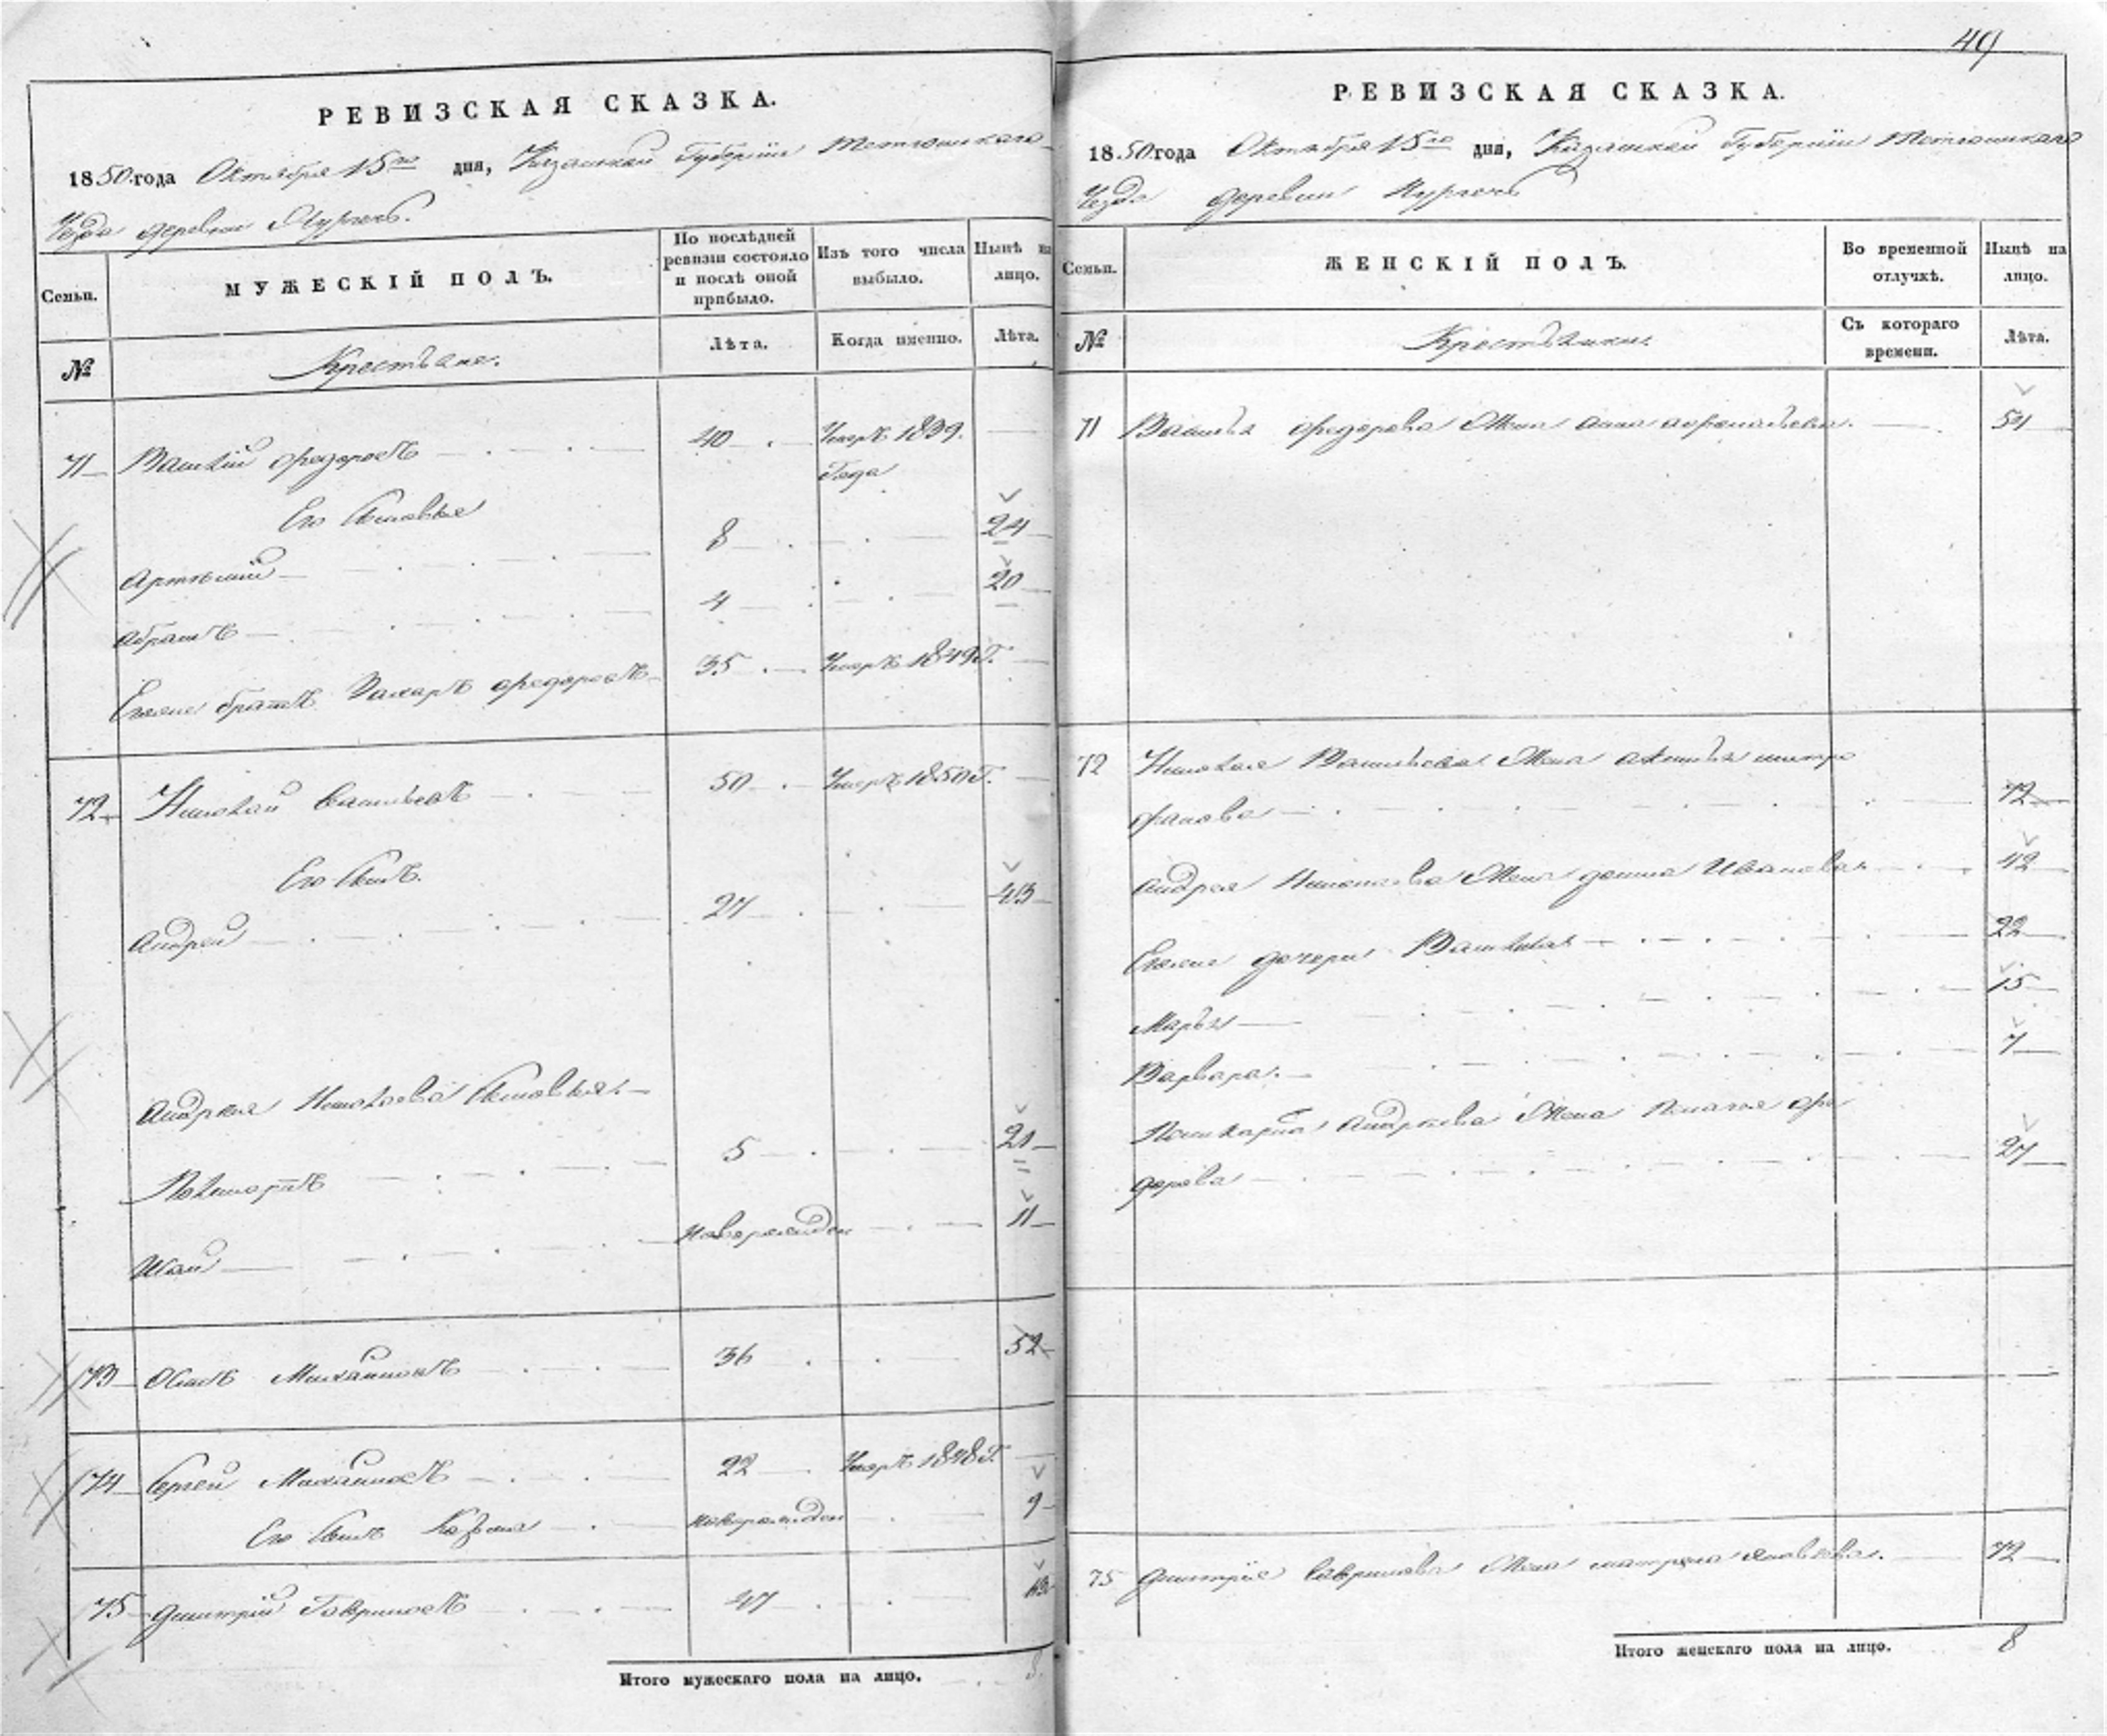 49
РЕВИЗСКАЯ СКАЗКА.
1850 года Октября 15го дня, Казанской Губернiи Тетюшскаго
Уезда деревни
Семьи.
МУЖЕСКІЙ ПОЛЪ.
По послѣдней ревизіи состояло и послѣ оной прибыло.
Изъ того числа выбыло.
Нынѣ на лицо.
№
Крестьяне.
Лѣта.
Когда именно.
Лѣта.
71 Василій Федоровъ 40 Умеръ 1839.
Года
Его Сыновья
Артемій 8 24
Абрамъ 4 20
Братъ Захаръ Федоровъ 35 Умеръ 1849 Г.
72 Николай Васильевъ 50 Умеръ 1850 Г.
Его Сынъ.
Андрей 27 43
Андрея Николаева Сыновья.
5 21
новорожден 11
73 Михайловъ 36 52
74 Сергей Михайловъ 22 Умеръ 1848 Г.
Его Сынъ новорожден 9
75 Дмитрій Гавриловъ 47
Итого мужескаго пола на лицо. 8.
РЕВИЗСКАЯ СКАЗКА.
1850 года Октября 15го дня, Казанской Губернiи Тетюшскаго
Уезда деревни
Семьи.
ЖЕНСКІЙ ПОЛЪ.
Во временной отлучкѣ.
Нынѣ на лицо.
№
Крестьянки.
Съ котораго времени.
Лѣта.
71 Василья Федорова Жена Анна 54
72 Николая Васильева Жена
72
Андрея Николаева Жена Ивановая 42
дочери 22
Марья 15
Варвара. 7
Андреева Жена Фе
дорова 27
75 Дмитрія Гаврилова Жена Матрена Яковлева. 72
Итого женскаго пола на лицо. 8